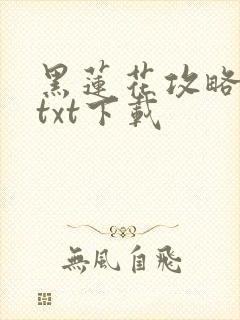 黑蓮花攻略
txt下載
無風自飛